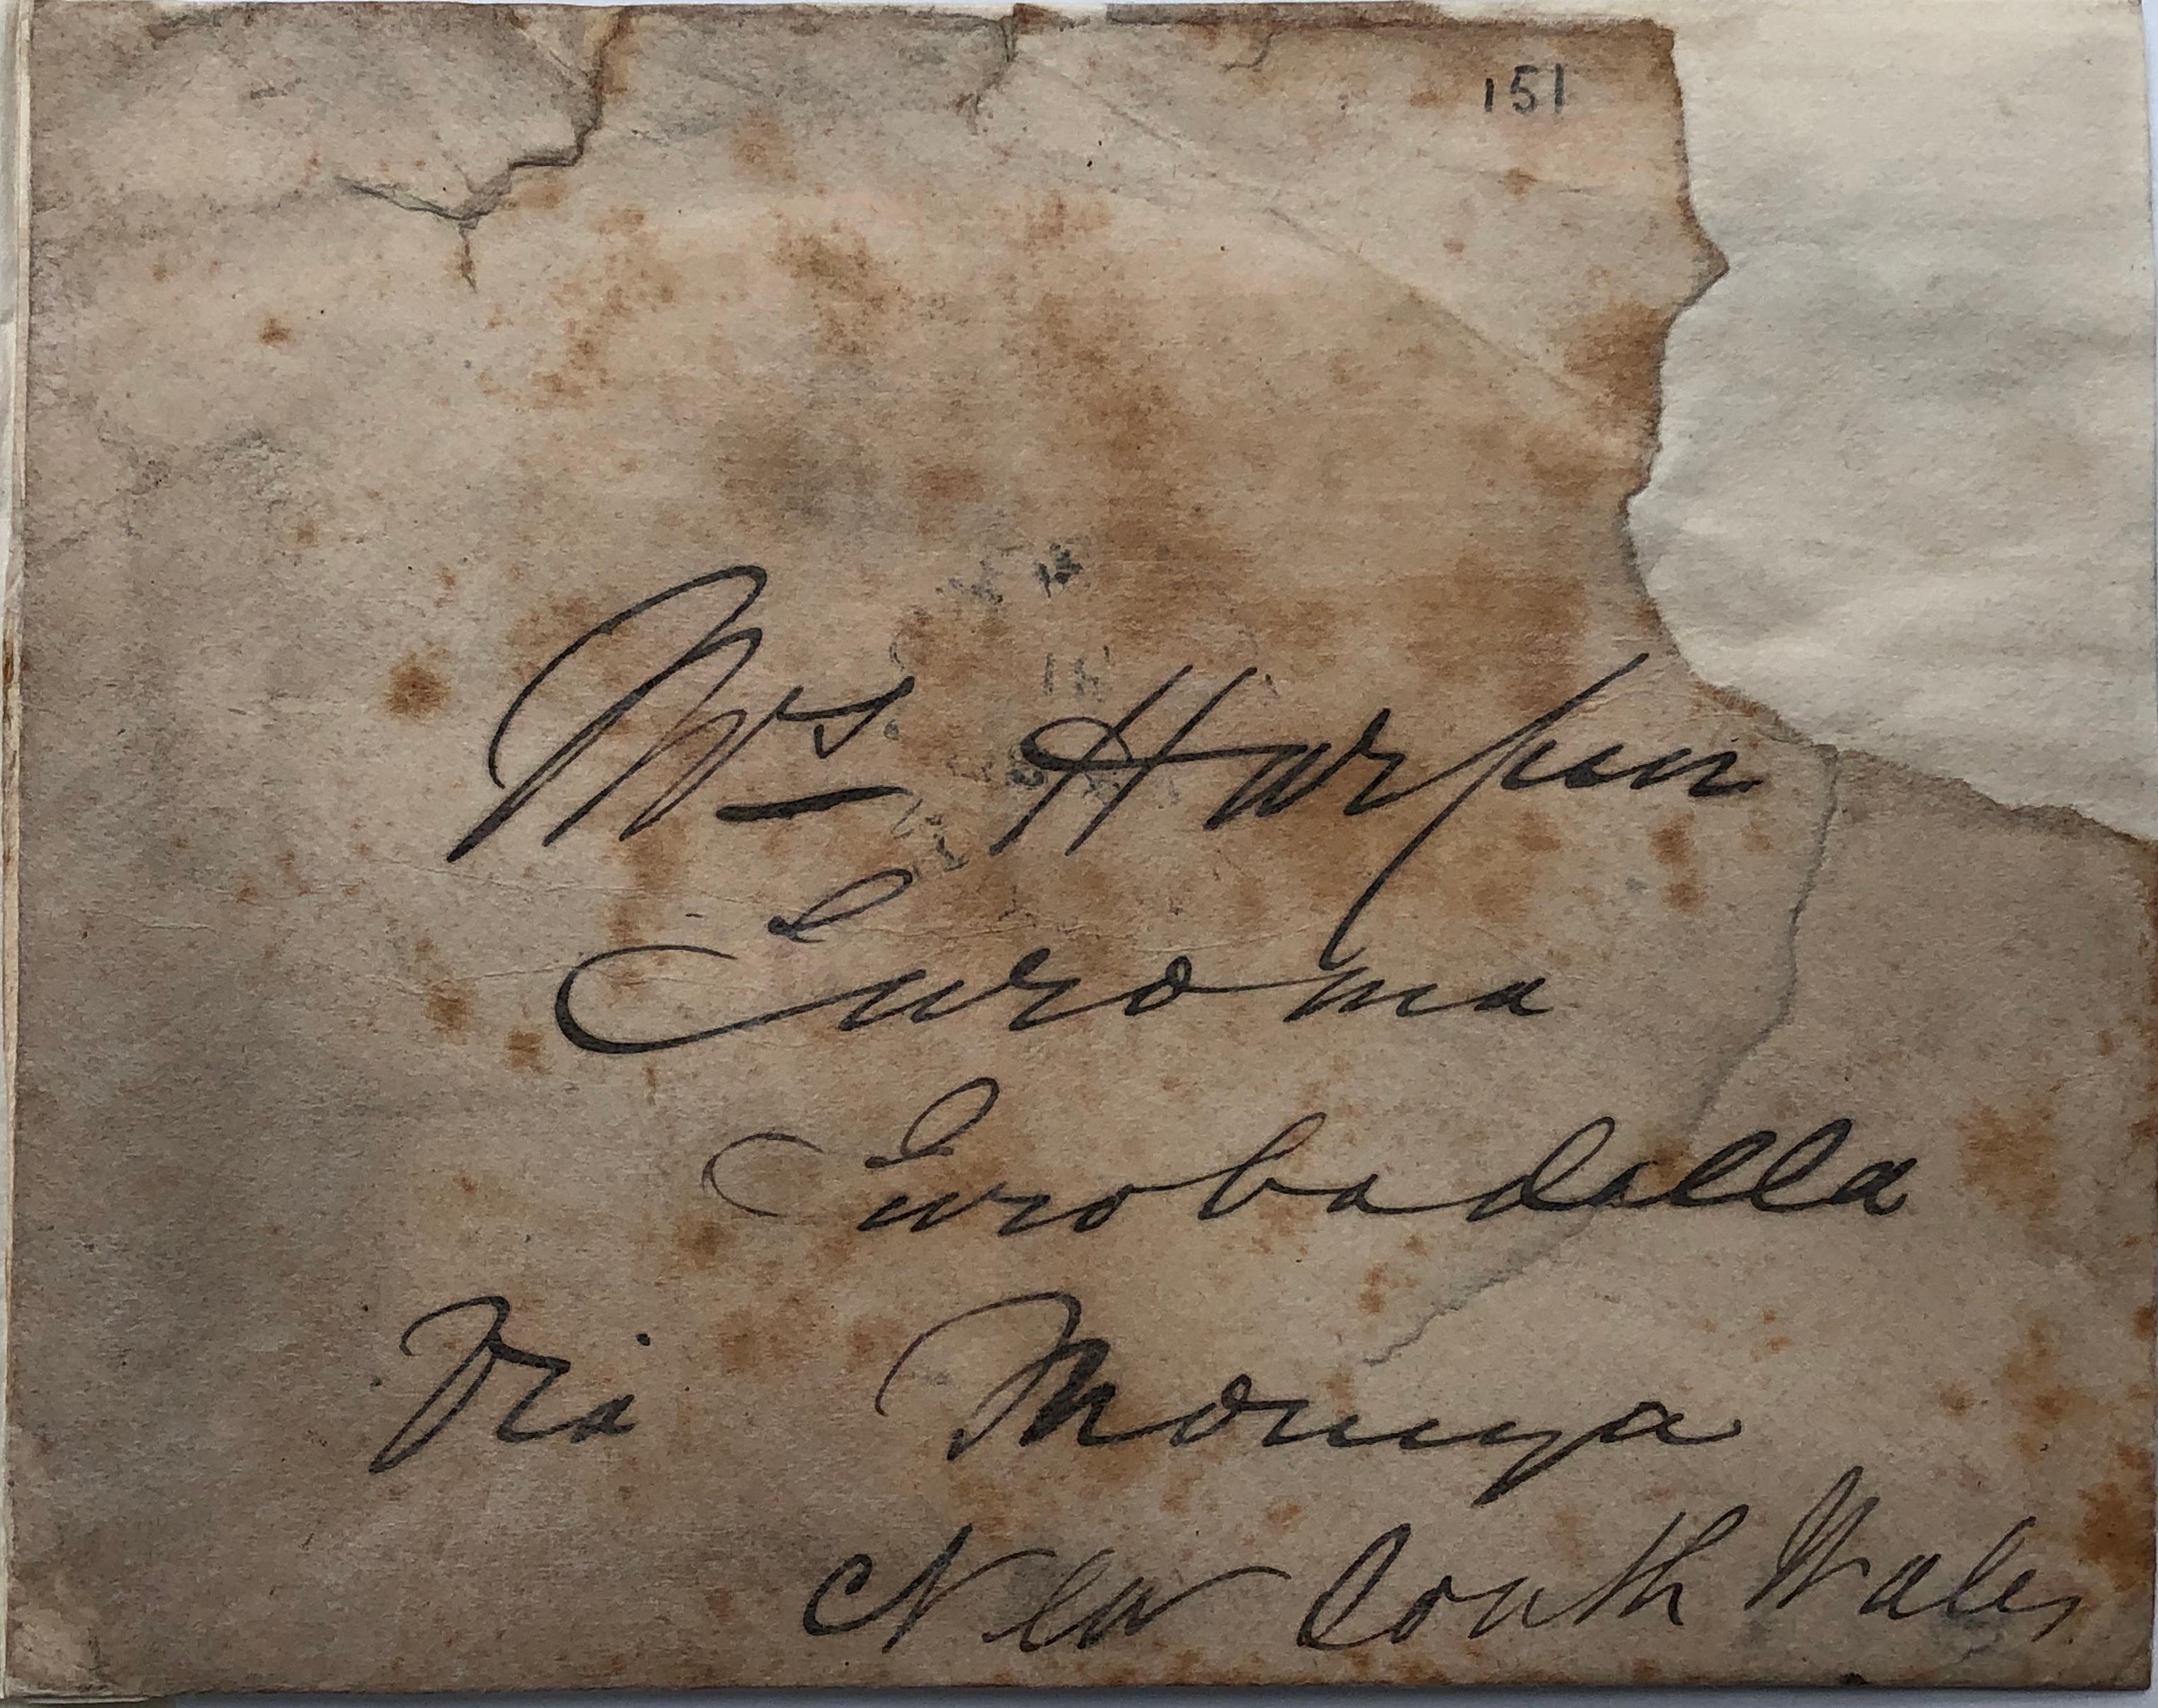 151
Mrs. Harpur
Euroma
Eurobadalla
Via Moruya
New South Wales